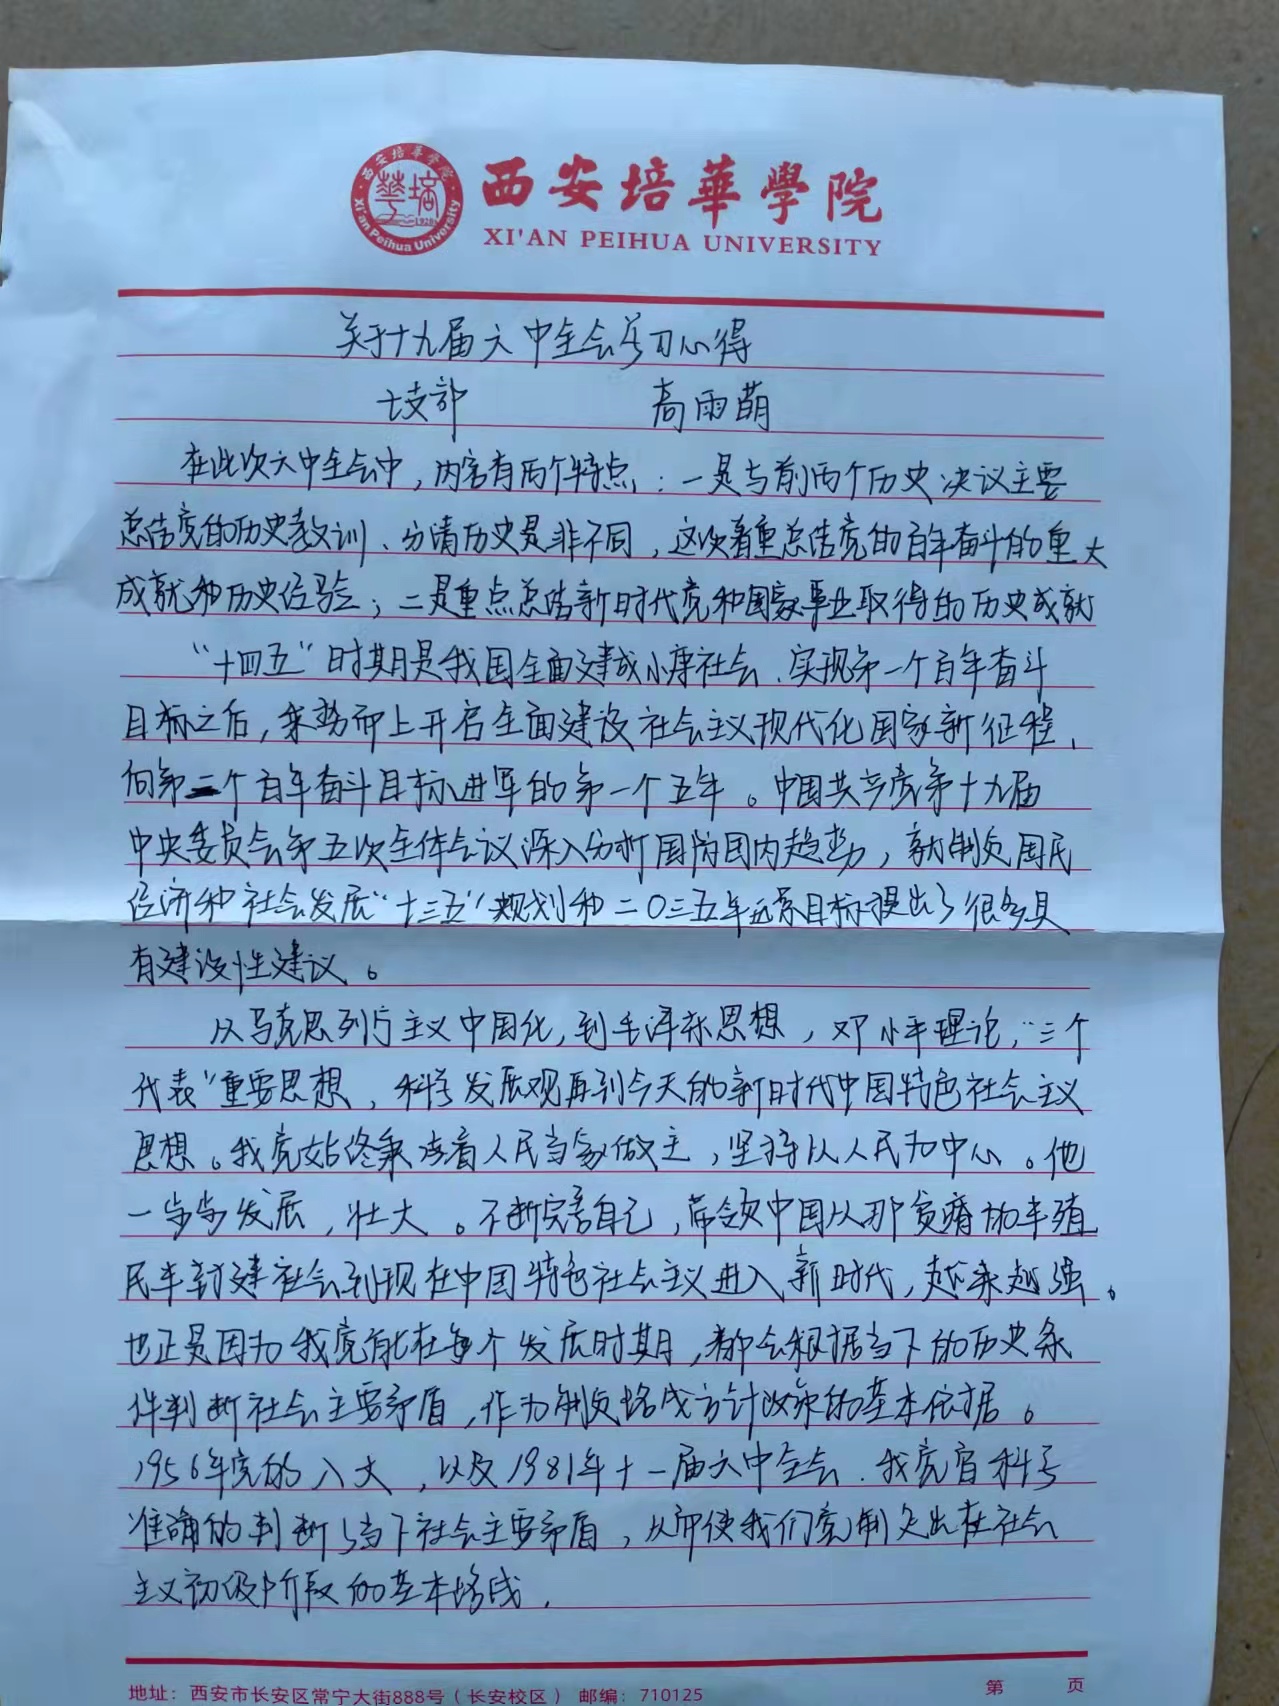 西安培華學院
XI'AN PEIHUA UNIVERSITY
西安培華學院
Xi'an Peihua University
1928
关于十九届六中全会学习心得
七支部 高雨萌
在此次六中全会中，内容有两个特点：一是与前两个历史决议主要
总结党的历史教训、分清历史是非不同，这次着重总结党的百年奋斗的重大
成就和历史经验；二是重点总结新时代党和国家事业取得的历史成就
“十四五”时期是我国全面建成小康社会、实现第一个百年奋斗
目标之后，乘势而上开启全面建设社会主义现代化国家新征程，
向第二个百年奋斗目标进军的第一个五年。中国共产党第十九届
中央委员会第五次全体会议深入分析国防国内趋势，就制定国民
经济和社会发展“十三五”规划和二〇三五年远景目标提出了很多具
有建设性建议。
从马克思列宁主义中国化，到毛泽东思想，邓小平理论，“三个
代表”重要思想，科学发展观再到今天的新时代中国特色社会主义
思想。我党始终秉持着人民当家做主，坚持以人民为中心。他
一步步发展，壮大。不断完善自己，带领中国从那贫瘠的半殖
民半封建社会到现在中国特色社会主义进入新时代，越来越强。
也正是因为我党能在每个发展时期，都会根据当下的历史条
件判断社会主要矛盾，作为制定路线方针政策的基本依据。
1956年党的八大，以及1981年十一届六中全会．我党皆科学
准确的判断当下社会主要矛盾，从而使我们党制定出在社会
主义初级阶段的基本路线．
地址：西安市长安区常宁大街888号（长安校区） 邮编：710125
第 页